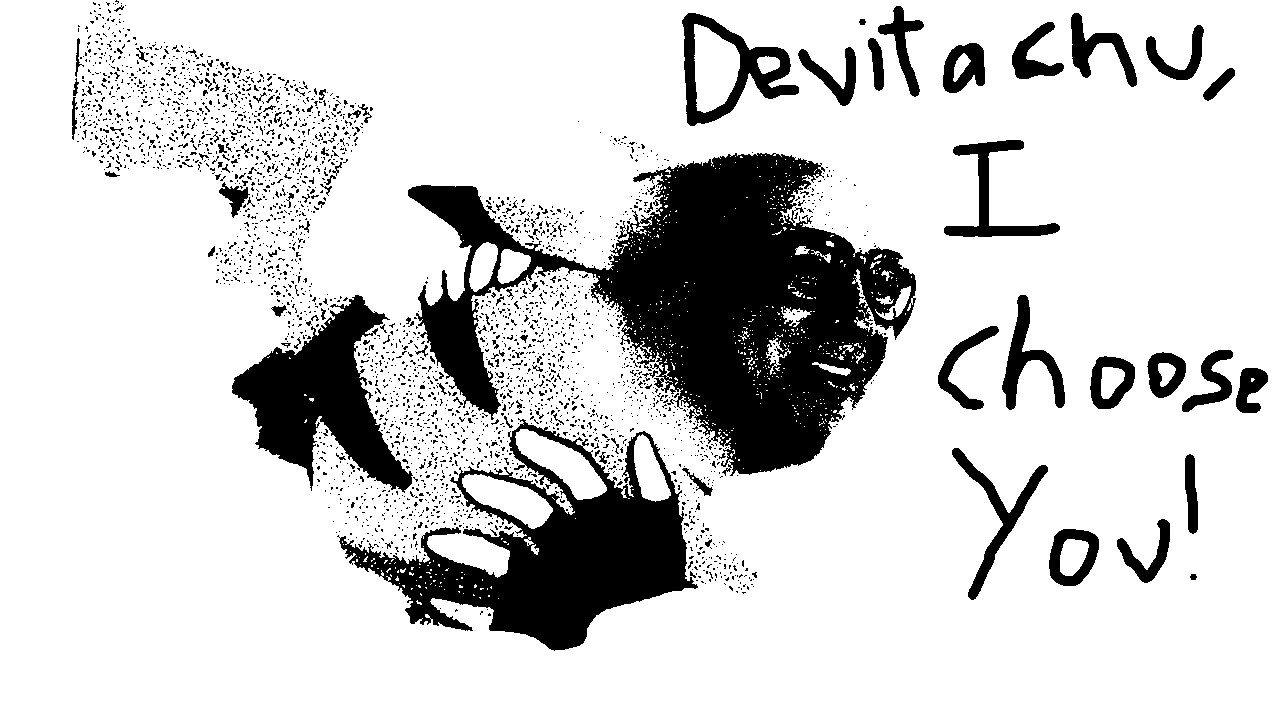 Devitachu,
I
choose
You!